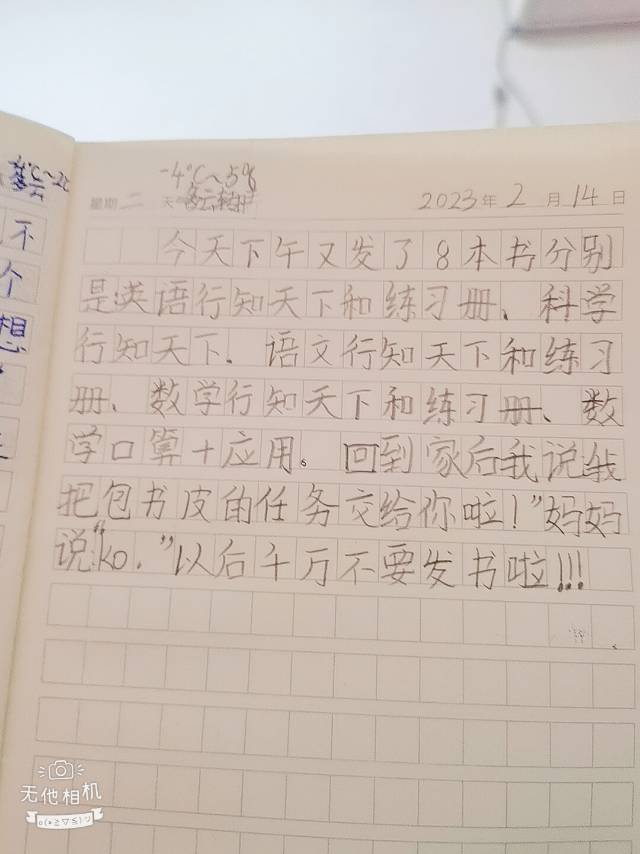 -4℃~5℃
星期二 天气多云转 2023年2月14日
今天下午又发了8本书分别
是英语行知天下和练习册、科学
行知天下、语文行知天下和练习
册、数学行知天下和练习册、数
学口算+应用。回到家后我说我
把包书皮的任务交给你啦！”妈妈
说“ko.”以后千万不要发书啦!!!
不
个
想
无他相机